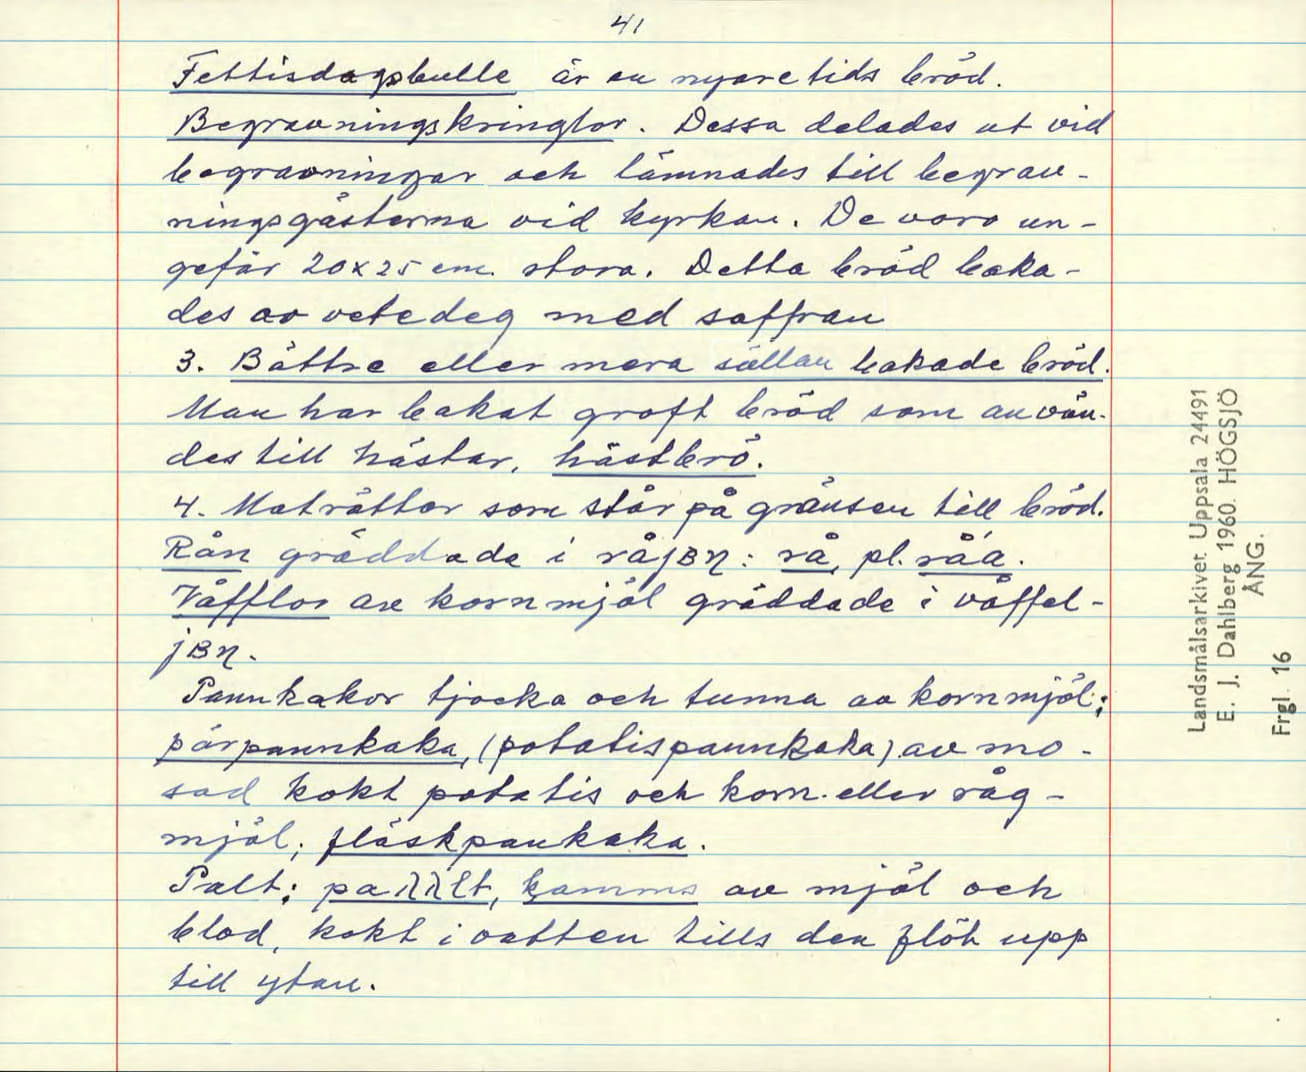 41
Fettisdagsbulle är en nyare tids bröd.
Begravningskringlor. Dessa delades ut vid
begravningar och lämnades till begrav-
ningsgästerna vid kyrkan. De voro un-
gefär 20x25 cm. stora. Detta bröd baka-
des av vetedeg med saffran
3. Bättre eller mera sällan bakade bröd.
Man har bakat groft bröd som använ-
des till hästar, hästbrö.
4. Maträtter som står på gränsen till bröd.
Rån gräddade i råjBN: rå, pl. råa.
Våfflor av kornmjöl gräddade i våffel-
jBN.
Pannkakor tjocka och tunna av kornmjöl;
pärpannkaka, (potatispannkaka) av mo-
sad kokt potatis och korn- eller råg-
mjöl; fläskpankaka.
Palt: pallt, kamms av mjöl och
blod, kokt i vatten tills den flöt upp
till ytan.
Landsmålsarkivet. Uppsala 24491
E. J. Dahlberg 1960. HÖGSJÖ
ÅNG.
Frgl. 16